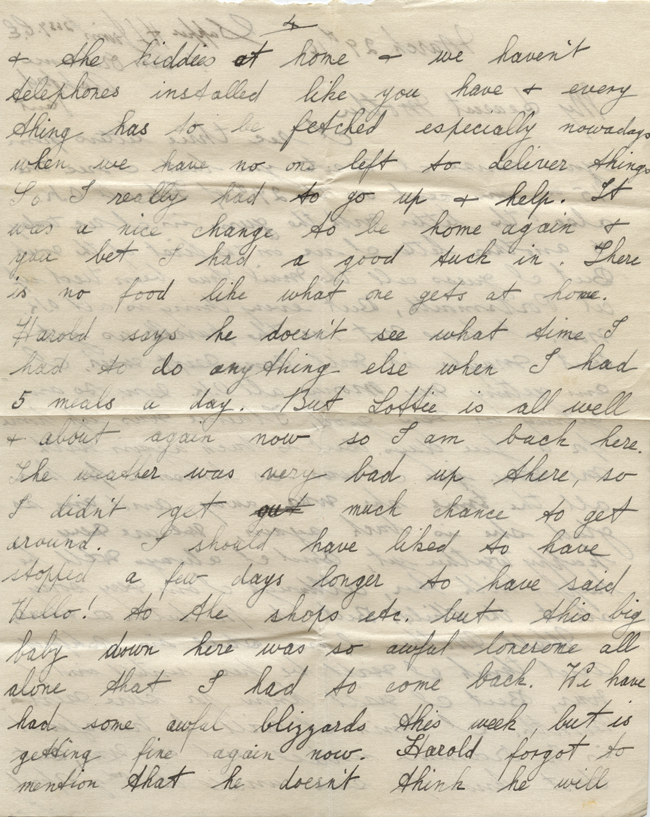 4
& the kiddies at home & we haven't
telephones installed like you have & every
thing has to be fetched especially nowadays
when we have no one left to deliver things
So I really had to go up & help. It
was a nice change to be home again &
you bet I had a good tuck in. There
is no food like what one gets at home.
Harold says he doesn't see what time I
had to do anything else when I had
5 meals a day. But Lottie is all well
& about again now so I am back here.
The weather was very bad up there, so
I didn't get out much chance to get
around. I should have liked to have
stopped a few days longer to have said
Hello! to the shops etc. but this big
baby down here was so awful lonesome all
alone that I had to come back. We have
had some awful blizzards this week, but is
getting fine again now. Harold forgot to
mention that he doesn't think he will